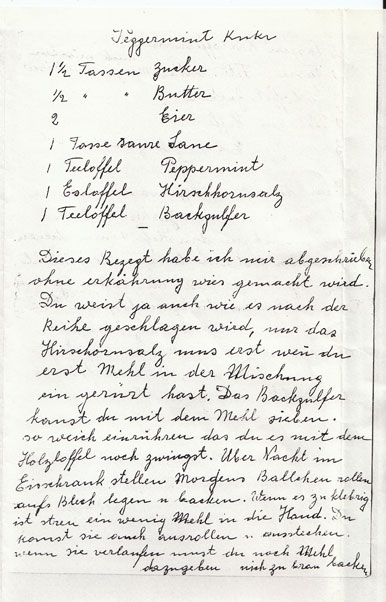 Peggermint Kuke
1½ Tassen Zucker
½ " " Butter
2 Eier
1 Tasse saure Sane
1 Teelöffel Peppermint
1 Eslöffel Hirschhornsalz
1 Teelöffel _ Backgulfer
Dieses Rezegt habe ich mir abgeschrieben
ohne erkährung wies gemacht wird.
Du weist ja auch wie es nach der
Reihe geschlagen wird, nur das
Hirschornsalz mus erst wen du
erst Mehl in der Mischung
ein gerürt hast. Das Backgülfer
kanst du mit dem Mehl sieben.
so weich einrühren das du es mit dem
Holzloffel noch zwingst. Über Nacht im
Eisschrank stellen Morgens Ballchen rollen
aufs Blech legen u backen. Wenn es zu klebrig
ist streu ein wenig Mehl in die Hand. Du
kanst sie auch ausrollen u. ausstechen.
wenn sie verlaufen must du noch Mehl
dazugeben nich zu braun backen